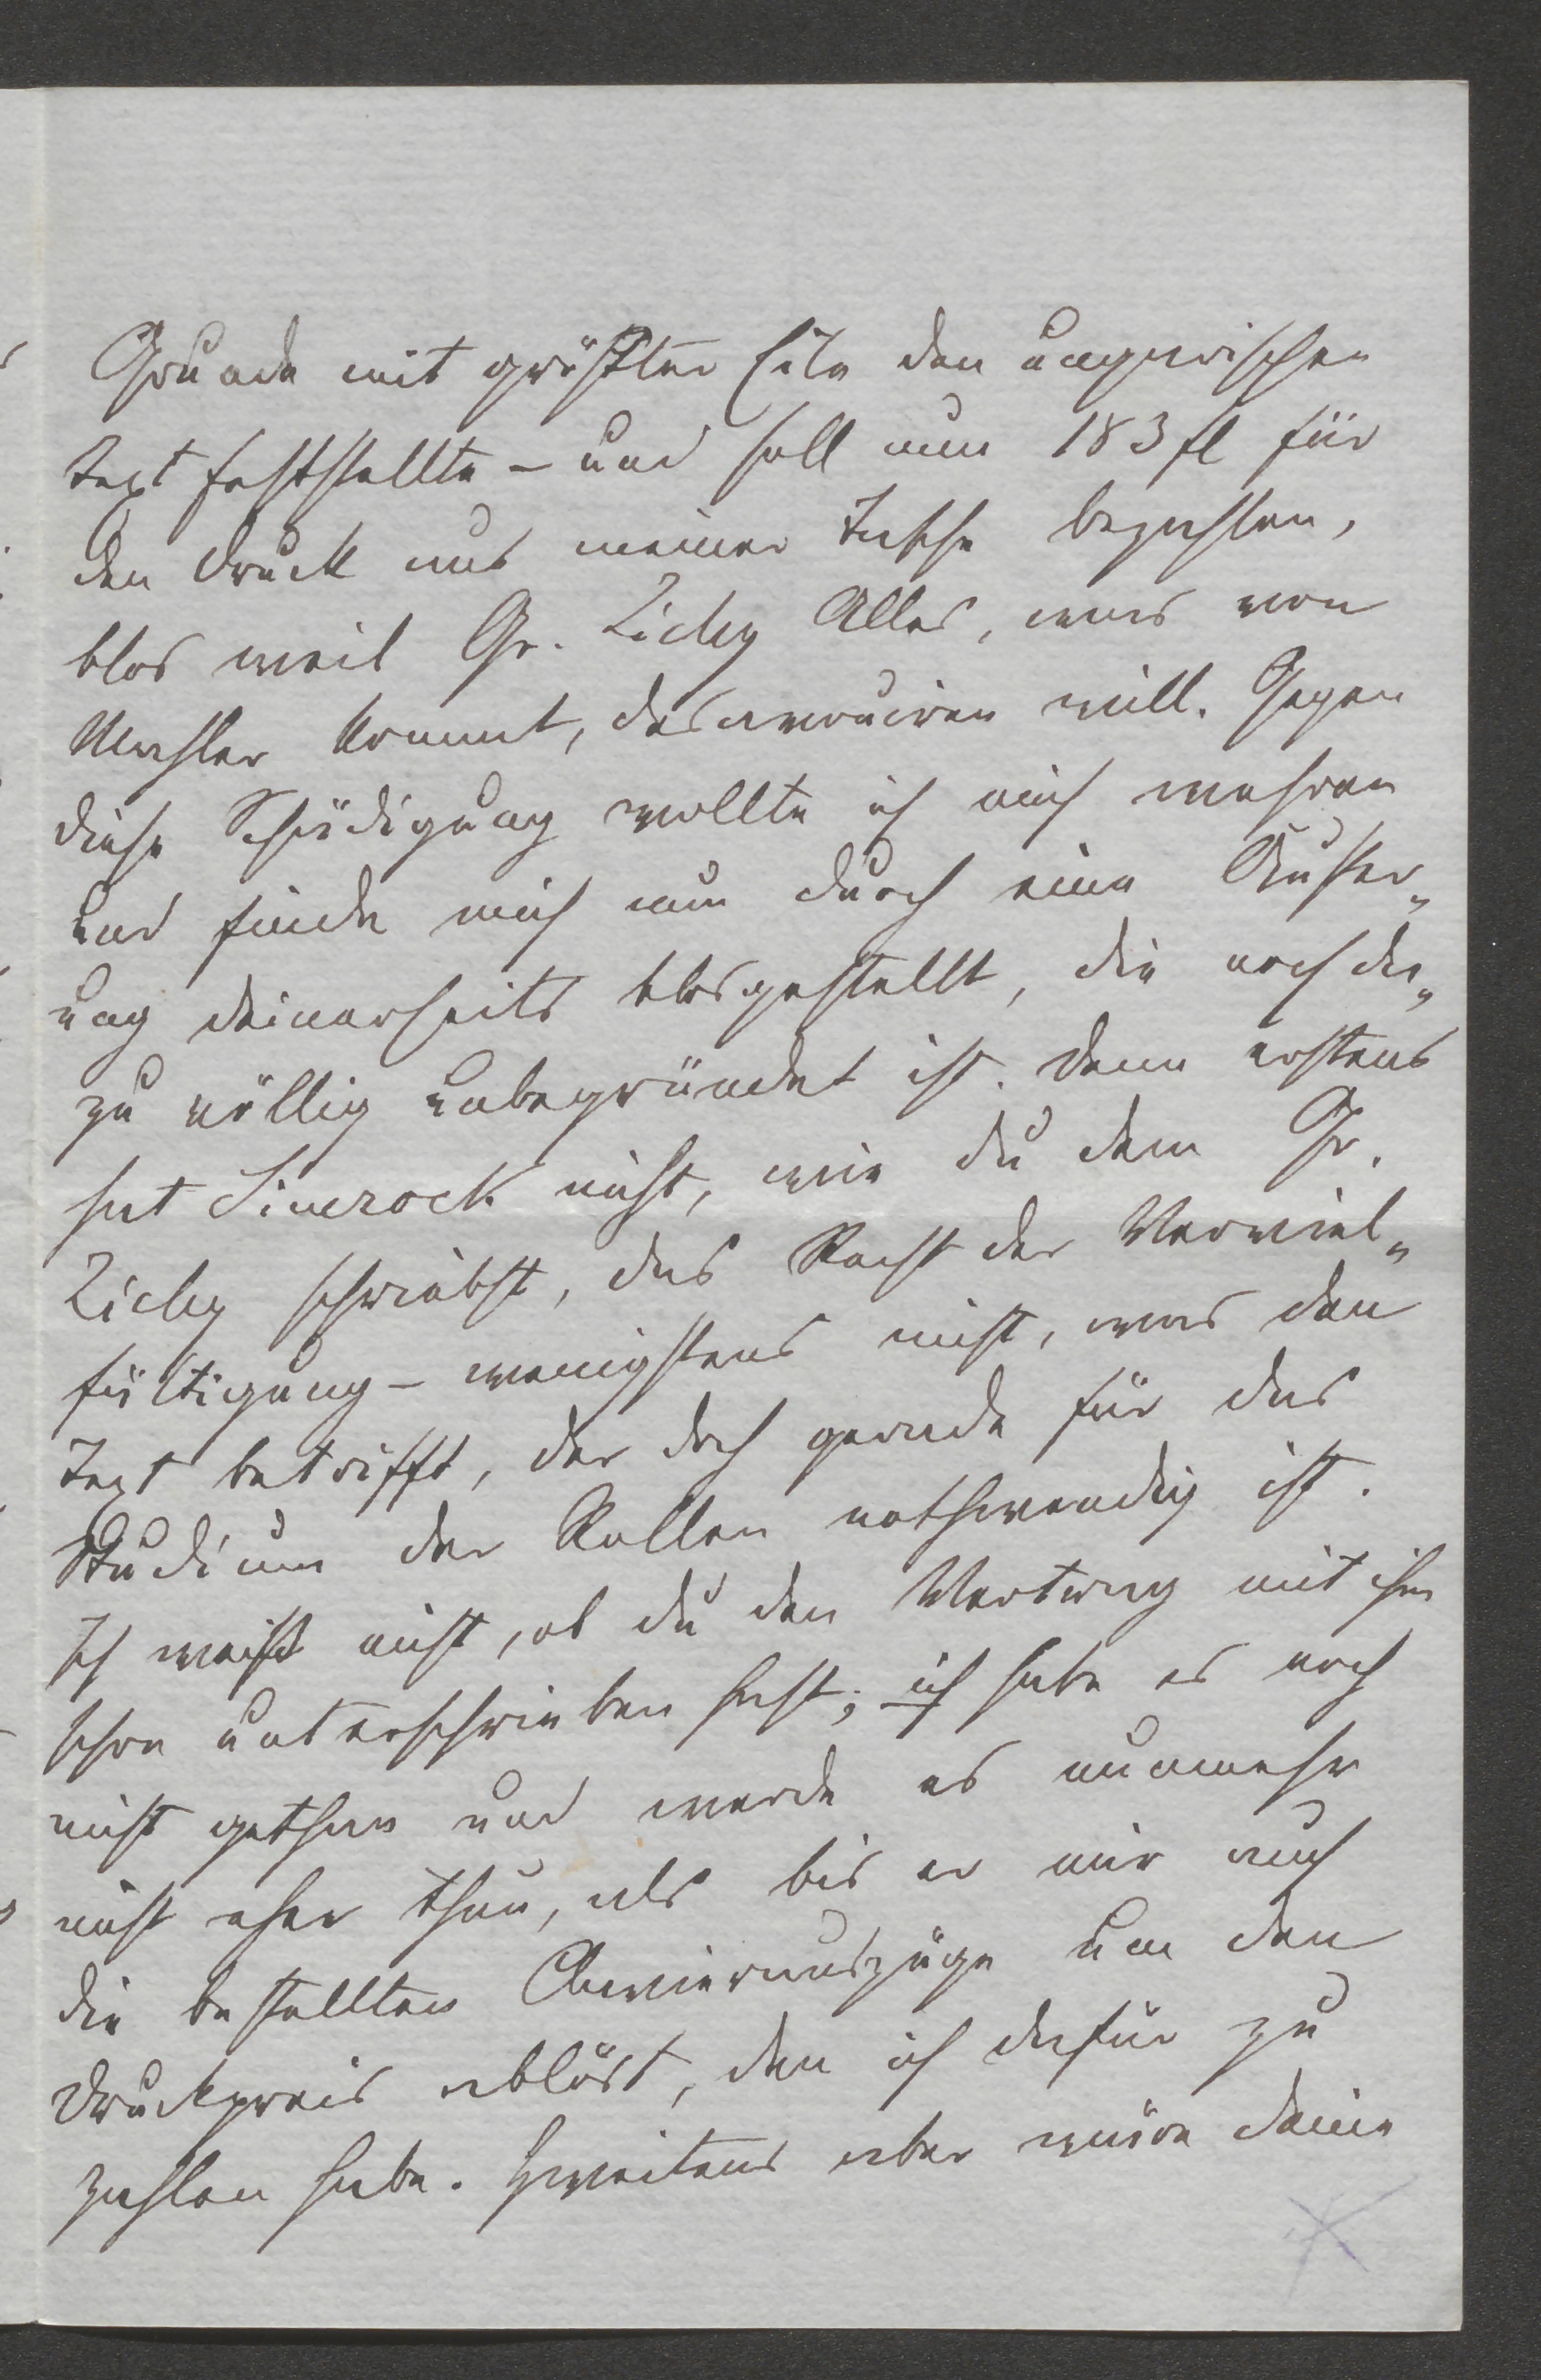 Grunde mit größter Eile den ungarischen
Text feststellte – und soll nun 183 fl für
den Druck aus meiner Tasche bezahlen,
blos weil Gr. Zichy Alles, was von
Mahler kommt, desavouiren will. Gegen
diese Schädigung wollte ich mich wehren
und finde mich nun durch eine Äußer„
ung deinerseits blosgestellt, die noch da„
zu völlig unbegründet ist. Denn erstens
hat Simrock nicht, wie du dem Gr.
Zichy schriebst, das Recht der Verviel„
fältigung – wenigstens nicht, was den
Text betrifft, der doch gerade für das
Studium der Rollen nothwendig ist.
Ich weiß nicht, ob du den Vertrag mit ihm
schon unterschrieben hast; ich habe es noch
nicht gethan und werde es nunmehr
nicht eher thun, als bis er mir auch
die bestellten Clavierauszüge um den
Druckpreis ablöst, den ich dafür zu
zahlen habe. Zweitens aber wäre deine